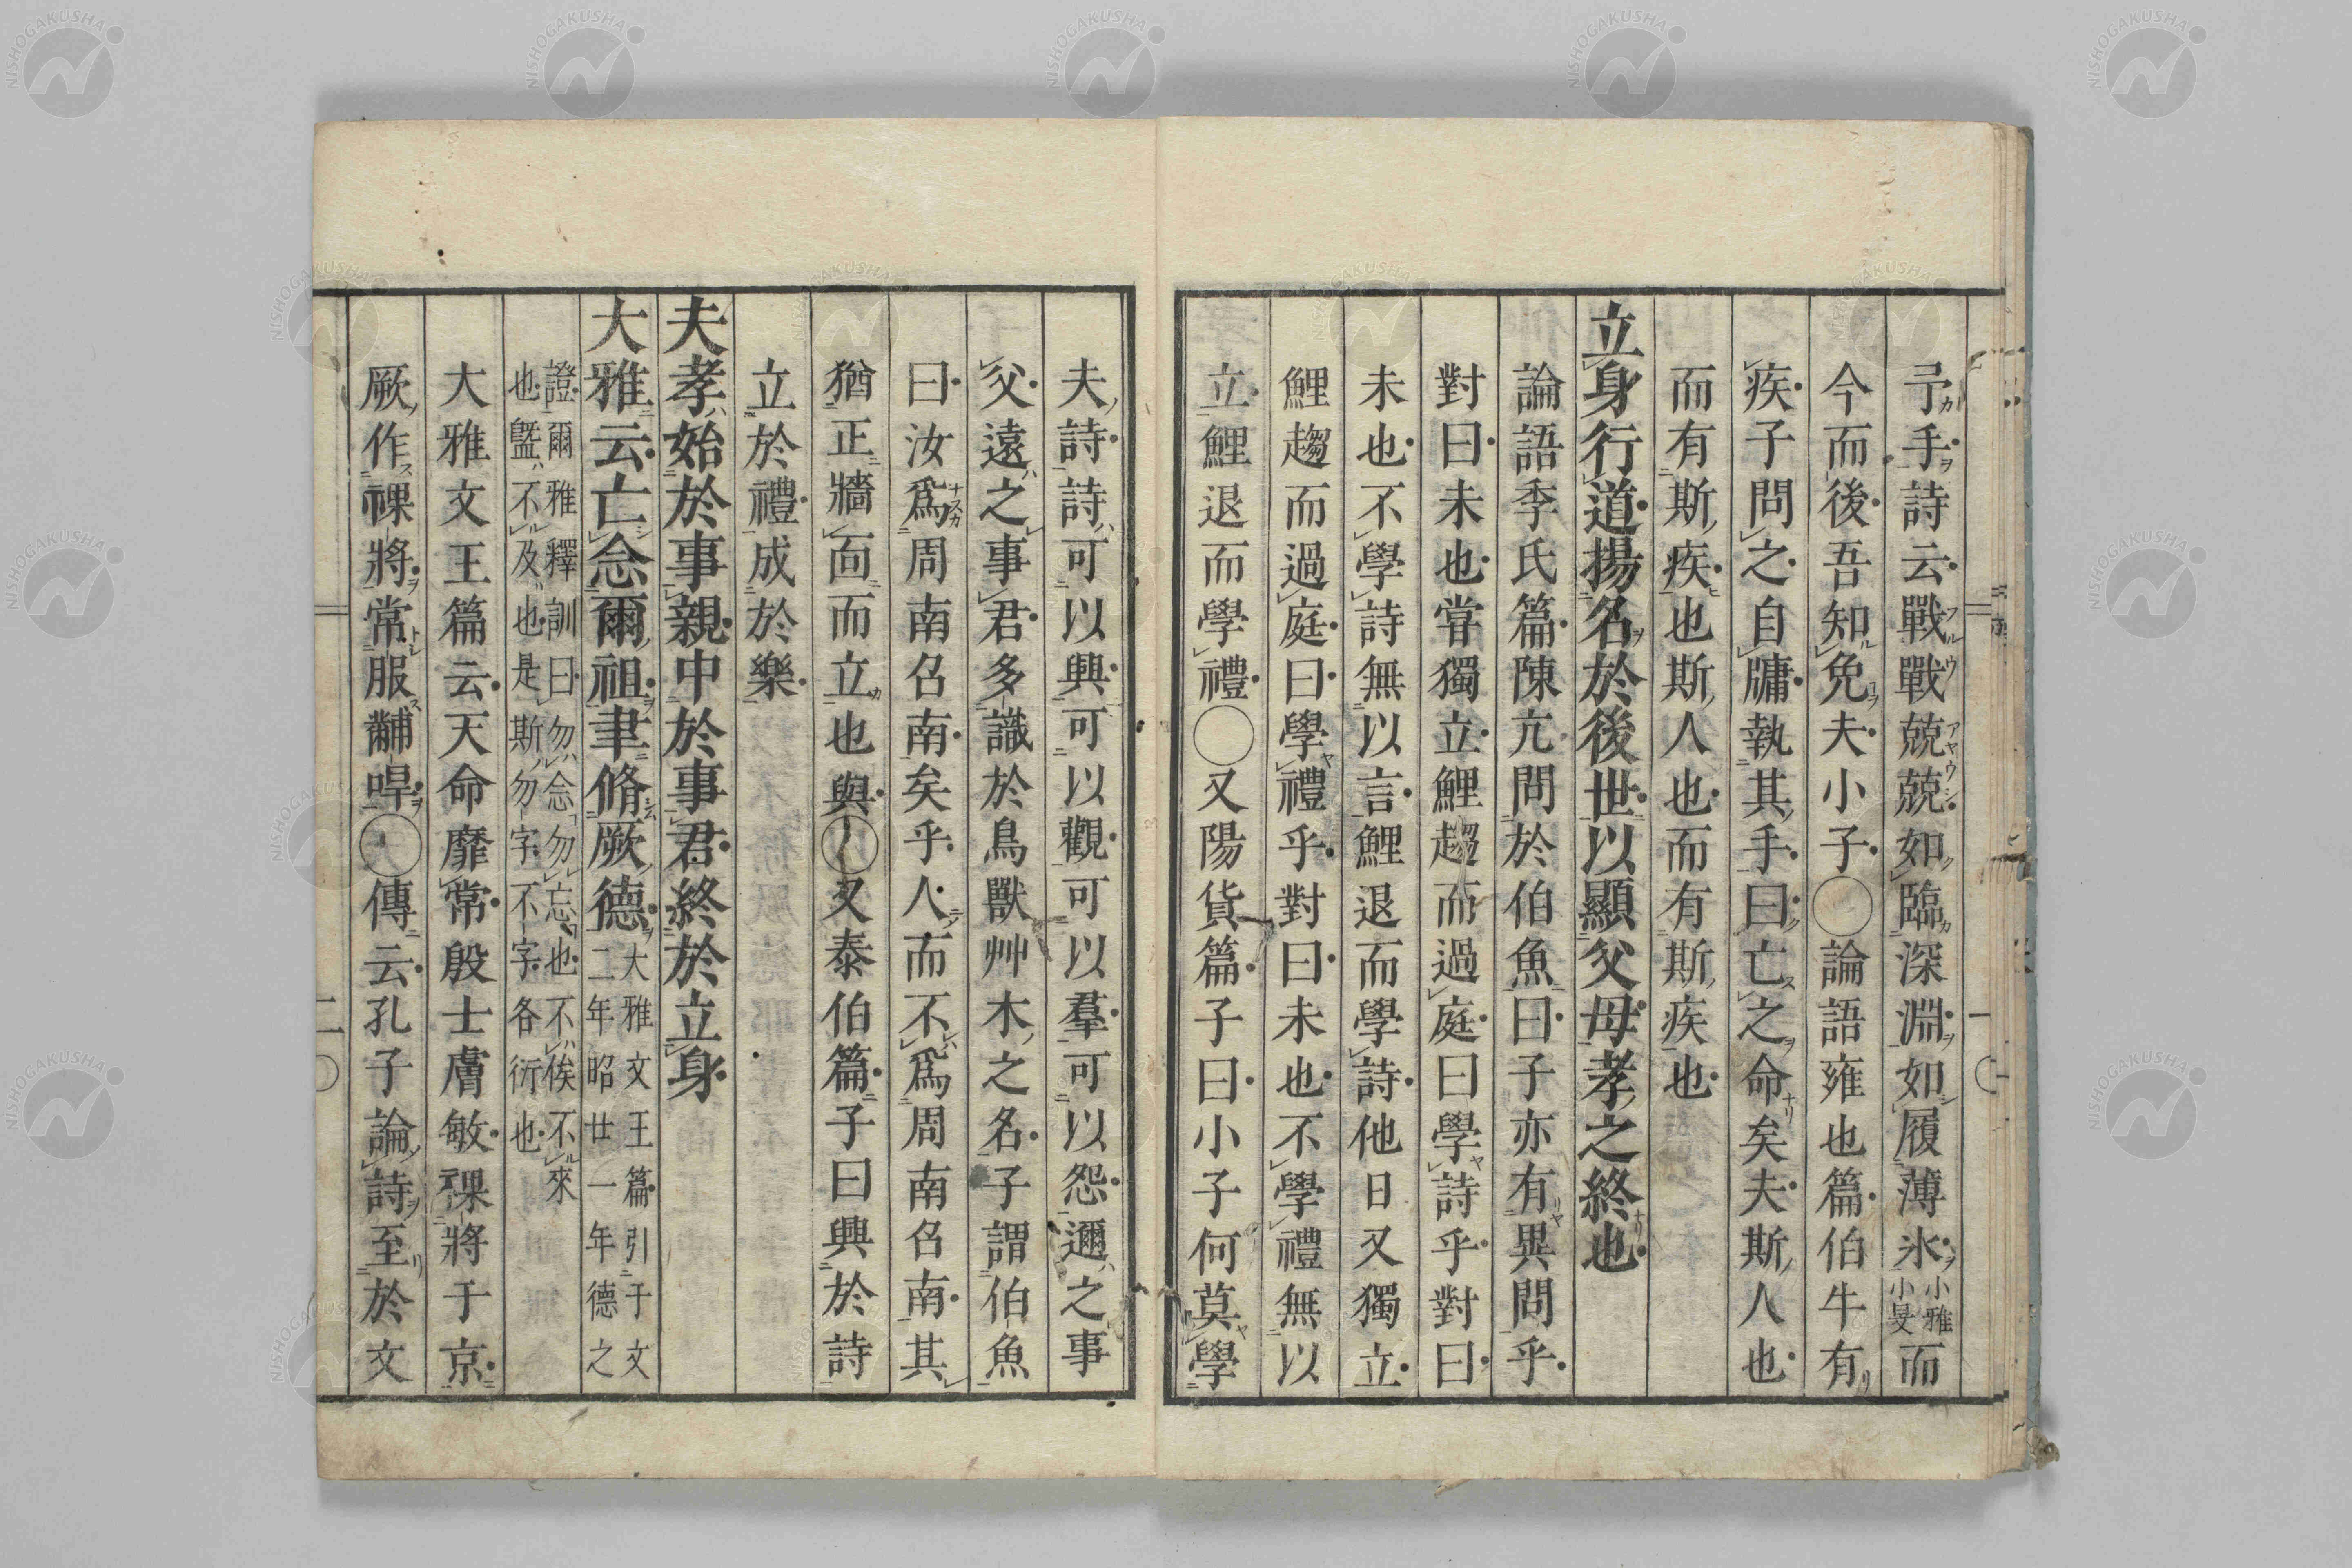 予手詩云戰戰兢兢如臨深淵如履薄氷小雅小旻而
今而後吾知免夫小子○論語雍也篇伯牛有
疾子問之自牖執其手曰亡之命矣夫斯人也
而有斯疾也斯人也而有斯疾也
立身行道揚名於後世以顯父母孝之終也
論語季氏篇陳亢問於伯魚曰子亦有異問乎
對曰未也甞獨立鯉趨而過庭曰學詩乎對曰
未也不學詩無以言鯉退而學詩他日又獨立
鯉趨而過庭曰學禮乎對曰未也不學禮無以
立鯉退而學禮○又陽貨篇子曰小子何莫學
夫詩詩可以興可以觀可以羣可以怨邇之事
父遠之事君多識於鳥獸艸木之名子謂伯魚
曰汝爲周南召南矣乎人而不爲周南召南其
猶正牆面而立也與○又泰伯篇子曰興於詩
立於禮成於樂
夫孝始於事親中於事君終於立身
大雅云亡念爾祖聿脩厥德大雅文王篇引于文
二年昭廿一年德之
證爾雅釋訓曰勿念勿忘也不俟不來
也曁不及也是斯勿字不字各衍也
大雅文王篇云天命靡常殷士膚敏祼將于京
厥作祼將常服黼冔○傳云孔子論詩至於文
二
NISHOGAKUSHA